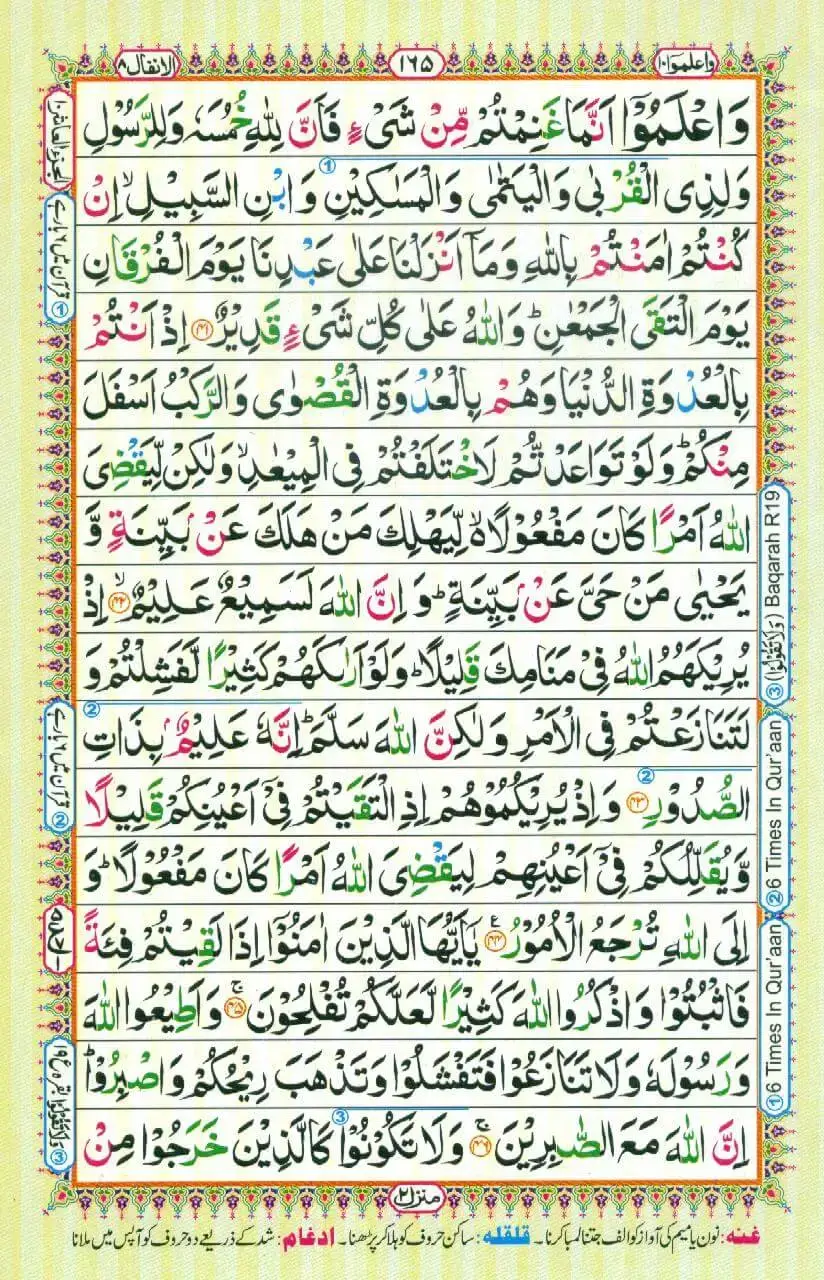 واعلموا ١٠
١٦٥
الانفال ٨
وَاعْلَمُوْۤا اَنَّمَا غَنِمْتُمْ مِّنْ شَیْءٍ فَاَنَّ لِلّٰهِ خُمُسَهٗ وَلِلرَّسُوْلِ
وَلِذِی الْقُرْبٰى وَالْیَتٰمٰى وَالْمَسٰكِیْنِ وَابْنِ السَّبِیْلِ ۙ اِنْ
كُنْتُمْ اٰمَنْتُمْ بِاللّٰهِ وَمَاۤ اَنْزَلْنَا عَلٰى عَبْدِنَا یَوْمَ الْفُرْقَانِ
یَوْمَ الْتَقَى الْجَمْعٰنِ ؕ وَاللّٰهُ عَلٰى كُلِّ شَیْءٍ قَدِیْرٌ ﴿۴۱﴾ اِذْ اَنْتُمْ
بِالْعُدْوَةِ الدُّنْیَا وَهُمْ بِالْعُدْوَةِ الْقُصْوٰى وَالرَّكْبُ اَسْفَلَ
مِنْكُمْ ؕ وَلَوْ تَوَاعَدْتُّمْ لَاخْتَلَفْتُمْ فِی الْمِیْعٰدِ ۙ وَلٰكِنْ لِّیَقْضِیَ
اللّٰهُ اَمْرًا كَانَ مَفْعُوْلًا ۙ۬ لِّیَهْلِكَ مَنْ هَلَكَ عَنْۢ بَیِّنَةٍ وَّ
یَحْیٰى مَنْ حَیَّ عَنْۢ بَیِّنَةٍ ؕ وَاِنَّ اللّٰهَ لَسَمِیْعٌ عَلِیْمٌ ﴿۴۲﴾ ۙ اِذْ
یُرِیْكَهُمُ اللّٰهُ فِیْ مَنَامِكَ قَلِیْلًا ؕ وَلَوْ اَرٰىكَهُمْ كَثِیْرًا لَّفَشِلْتُمْ وَ
لَتَنَازَعْتُمْ فِی الْاَمْرِ وَلٰكِنَّ اللّٰهَ سَلَّمَ ؕ اِنَّهٗ عَلِیْمٌۢ بِذَاتِ
الصُّدُوْرِ ﴿۴۳﴾ وَاِذْ یُرِیْكُمُوْهُمْ اِذِ الْتَقَیْتُمْ فِیْۤ اَعْیُنِكُمْ قَلِیْلًا
وَّیُقَلِّلُكُمْ فِیْۤ اَعْیُنِهِمْ لِیَقْضِیَ اللّٰهُ اَمْرًا كَانَ مَفْعُوْلًا ؕ وَ
اِلَى اللّٰهِ تُرْجَعُ الْاُمُوْرُ ﴿۴۴﴾ ۧ یٰۤاَیُّهَا الَّذِیْنَ اٰمَنُوْۤا اِذَا لَقِیْتُمْ فِئَةً
فَاثْبُتُوْا وَاذْكُرُوا اللّٰهَ كَثِیْرًا لَّعَلَّكُمْ تُفْلِحُوْنَ ﴿۴۵﴾ ۚ وَاَطِیْعُوا اللّٰهَ
وَرَسُوْلَهٗ وَلَا تَنَازَعُوْا فَتَفْشَلُوْا وَتَذْهَبَ رِیْحُكُمْ وَاصْبِرُوْا ؕ
اِنَّ اللّٰهَ مَعَ الصّٰبِرِیْنَ ﴿۴۶﴾ ۚ وَلَا تَكُوْنُوْا كَالَّذِیْنَ خَرَجُوْا مِنْ
الجزء العاشر ١٠
قرآن میں ٦ بارے ①
قرآن میں ٦ بارے ②
③ (وَلَا تَقُوْلُوْا) Baqarah R19
② 6 Times In Qur'aan
① 6 Times In Qur'aan
منزل ٢
غنه: نون یا میم کی آواز کو الف جتنا لمبا کرنا۔ قلقله: ساکن حروف کو ہلا کر پڑھنا۔ ادغام: شد کے ذریعے دو حروف کو آپس میں ملانا